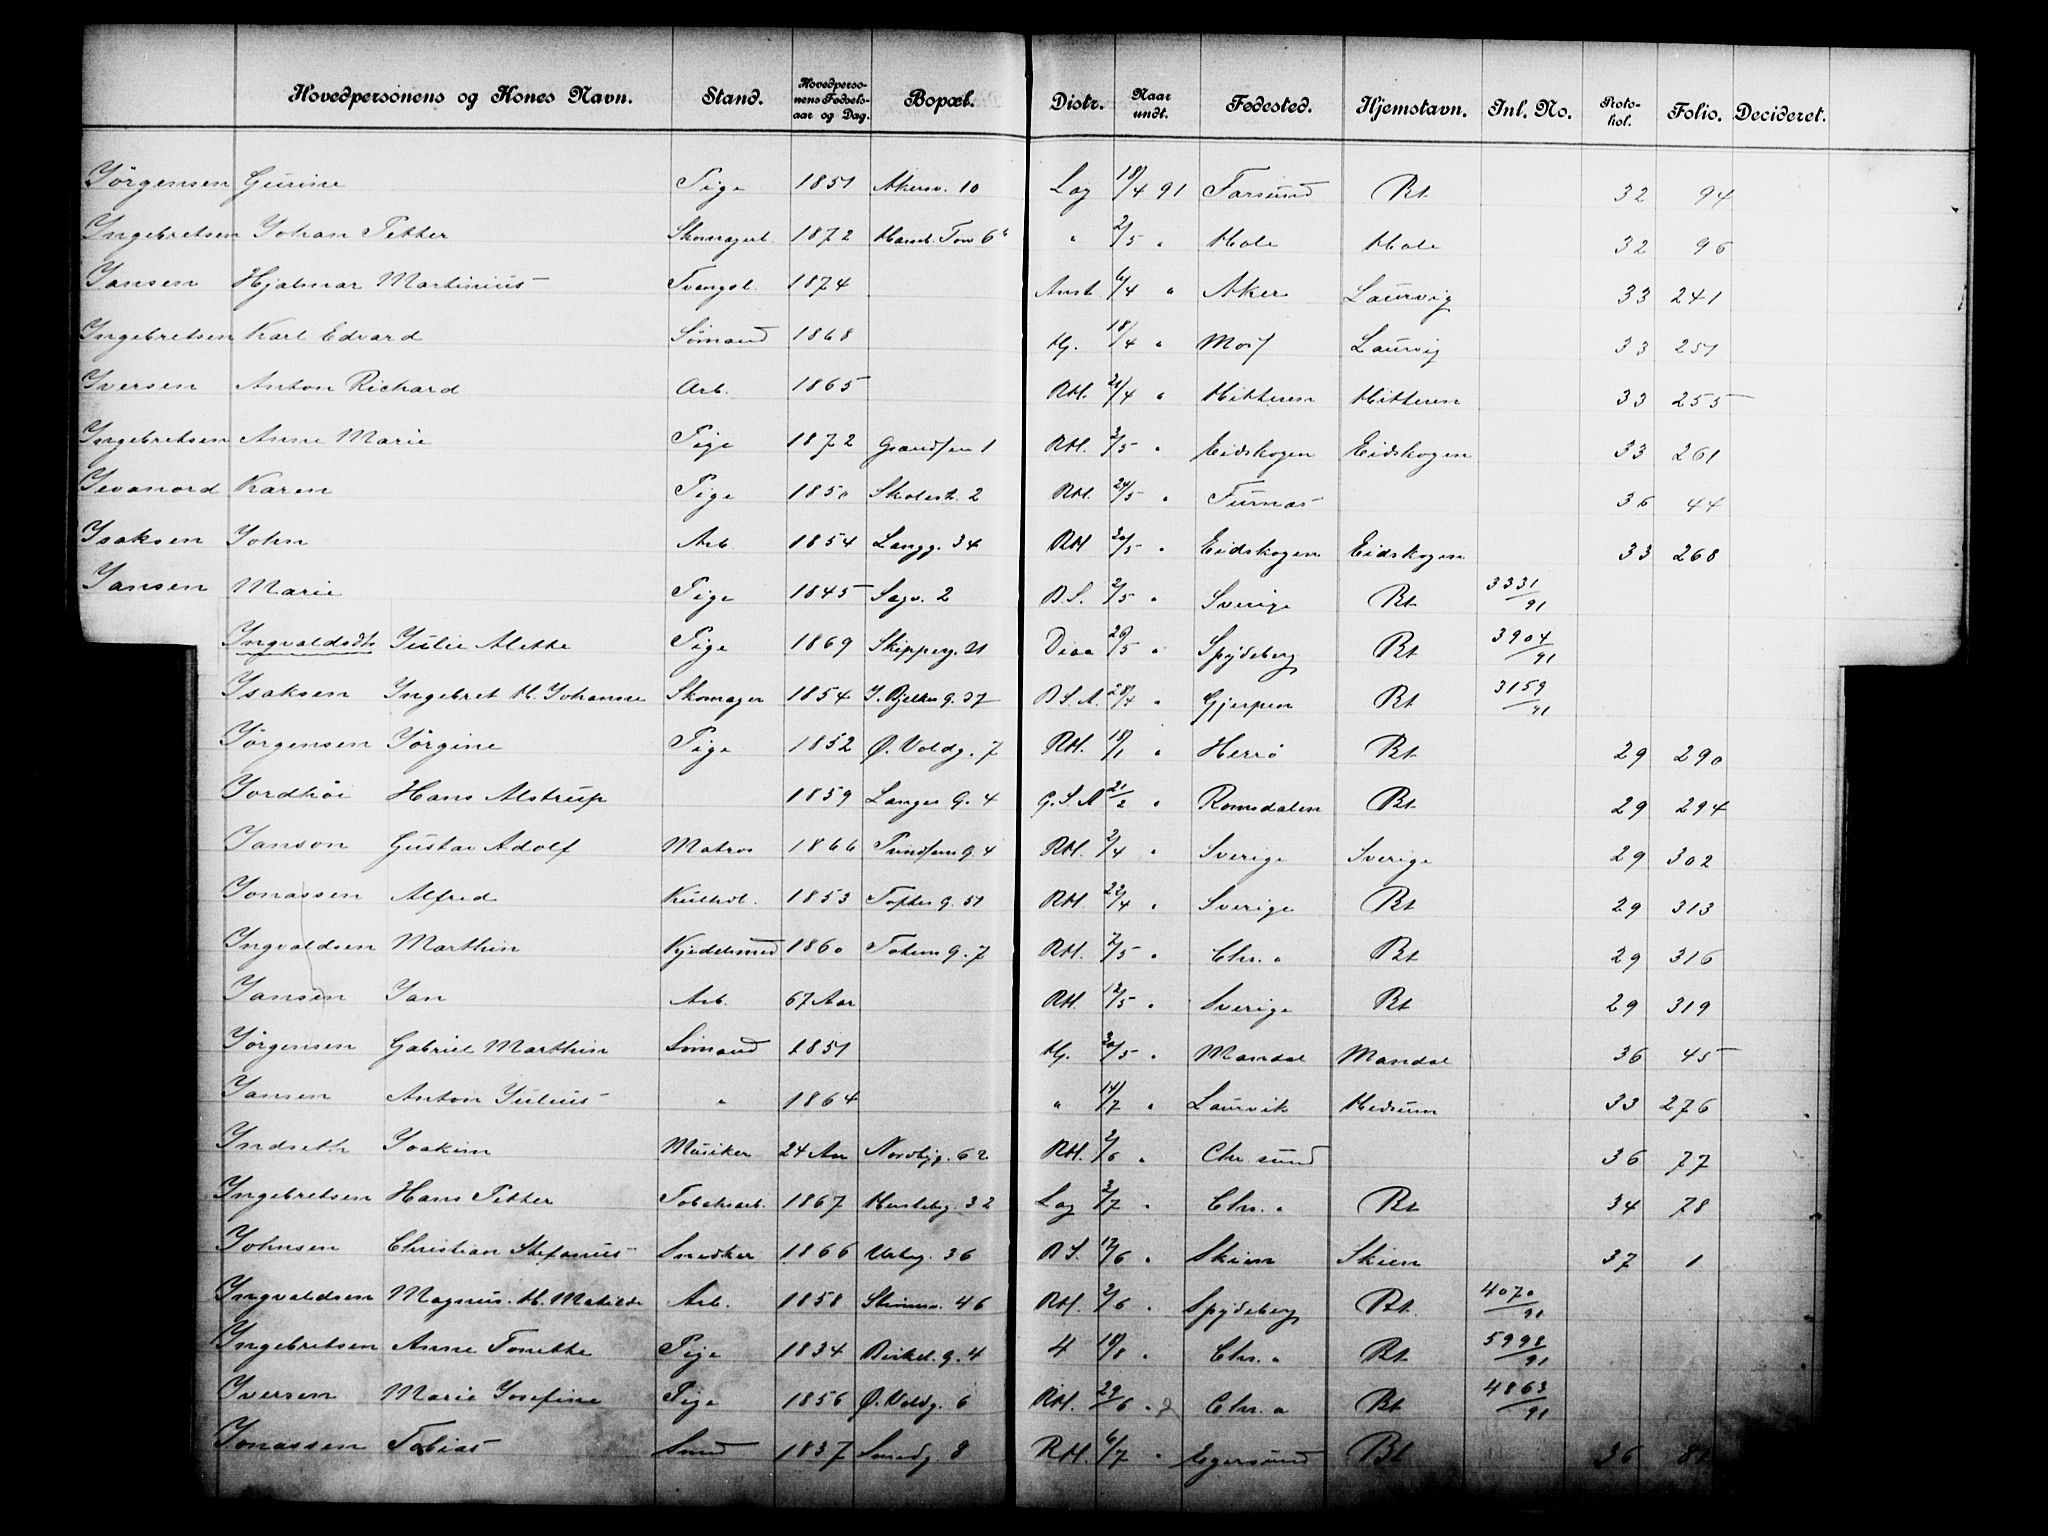 Hovedpersonens og Kones Navn. Stand. Hovedperso-nens Fødsels-aar og Dag. Bopæl. Distr. Naar undt. Fødested. Hjemstavn. Inl. No. Proto-kol. Folio. Decideret.
Jörgensen Gurine Pige 1851 Akersv. 10 Lag 18/4 91 Farsund Bt 32 94
Ingebretsen Johan Petter Skomagerl. 1872 " 2/5 " Hole Hole 32 96
Jansen Hjalmar Martinius Tvangsl. 1874 Anst. 6/4 " Aker Laurvig 33 241
Ingebretsen Karl Edvard Sömand 1868 Hj. 18/4 " Moss Laurvig 33 251
Iversen Anton Richard Arb. 1865 RH. 21/4 " Hitteren Hitteren 33 255
Ingebretsen Anne Marie Pige 1872 Grændsen 1 RH. 3/5 " Eidskogen Eidskogen 33 261
Jevanord Karen Pige 1850 Skolest. 2 RH. 24/5 " Furnas 36 44
Isaksen John Arb. 1854 Langg. 34 RH 30/5 " Eidskogen Eidskogen 33 268
Jansen Marie Pige 1845 Sagv. 2 B.S. 2/5 " Sverige Bt 3331/91
Ingvaldsdtr Julie Alette Pige 1869 Skipperg. 21 Diaa 26/5 " Spydeberg Bt 3904/91
Isaksen Ingebret H. Johanne Skomager 1854 J. Bjelkes g. 37 B.S.A. 28/4 " Gjerpen Bt 3159/91
Jörgensen Jörgine Pige 1852 Ø. Voldg. 7 RH. 18/1 " Herrö Bt 29 290
Jordhöi Hans Alstrup 1859 Langes G. 4 G.S.A 21/2 " Romsdalen Bt 29 294
Janson Gustav Adolf Matros 1866 RH. 2/4 " Sverige Sverige 29 302
Jonassen Alfred 1853 Toftes g. 51 RH. 22/4 " Sverige Bt 29 313
Ingvaldsen Marthin Kjedelsmed 1860 g. 7 RH. 7/5 " Chr. a Bt 29 316
Jansen Jan Arb. 67 Aar RH. 12/5 " Sverige Bt 29 319
Jörgensen Gabriel Marthin Sömand 1851 Hj. 30/5 " Mandal Mandal 36 45
Jansen Anton Julius " 1864 " 14/7 " Laurvik Hedrum 33 276
Indseth Joakim Musiker 24 Aar Nordbyg. 62 RH. 2/6 " Chr.sund 36 77
Ingebretsen Hans Petter Tobaksarb. 1867 Herslebg. 32 Lag 2/7 " Chr. a Bt 34 78
Johnsen Christian Stefanius Snedker 1866 Urteg. 36 B.S. 12/6 " Skien Skien 37 1
Ingvaldsen Magnus. H. Matilde Arb. 1858 46 RH. 2/6 " Spydeberg Bt. 4070/91
Ingebretsen Anne Tonette Pige 1834 Birkel. g. 4 4 18/8 " Chr. a Bt 5998/91
Iversen Marie Josefine Pige 1856 Ø. Voldg. 6 RH. 29/6 " Chr. a Bt 4863/91
Jonassen Tobias Smed 1837 Smedg. 8 RH. 6/7 " Egersund Bt 36 81